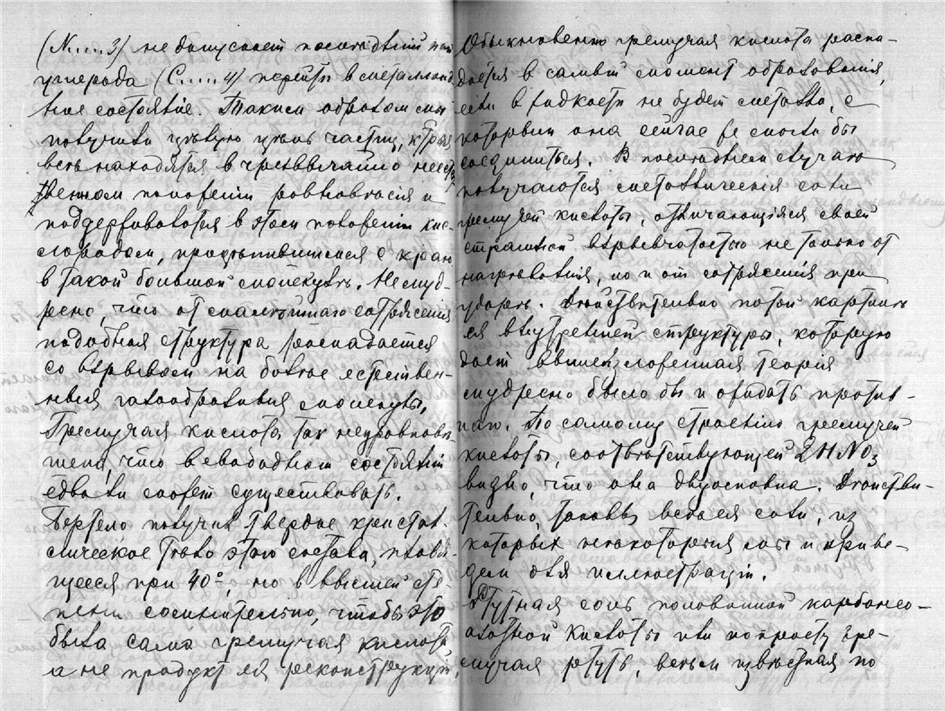 (N....3) не допускает последней
углерода (C....4) перейти в металлоид
ное состояние. Таким образом мы
получили целую цепь частиц, которая
весь находится в чрезвычайно неест
венном положении равновесия и
поддерживаются в этом положении кис
лородом, прицепившимся с краю
в такой большой молекуле. Немуд
рено, что от малейшего сотрясения
подобная структура распадается
со взрывом на более естествен-
ныя газообразныя молекулы.
Гремучая кислота так неуравнове
шена, что в свободном состоянии
едва ли может существовать.
Бертело получил твердое кристал
лическое тело этого состава, плавя-
щееся при 40°, но в высшей сте
пени сомнительно, чтобы это
была сама гремучая кислота,
а не продукт ея реконструкций,
Обыкновенно гремучая кислота распа-
дается в самый момент образования,
если в жидкости не будет металла, с
которым она сейчас же могла бы
соединиться. В последнем случае
получаются металлическия соли
гремучей кислоты, отличающияся своей
страшной взрывчатостью не только от
нагревания, но и от сотрясения при
ударе. Действительно по той картине
ея внутренней структуры, которую
дает вышеизложенная теория
мудрено было бы и ожидать против-
наго. По самому строению гремучей
кислоты, соответствующей 2HNO3
видно, что она двуосновна. Действи-
тельно, таковы все ея соли, из
которых некоторыя мы и приве-
дем для иллюстрации.
Ртутная соль половинной карбоно-
азотной кислоты или попросту гре-
мучая ртуть, весьма известная по